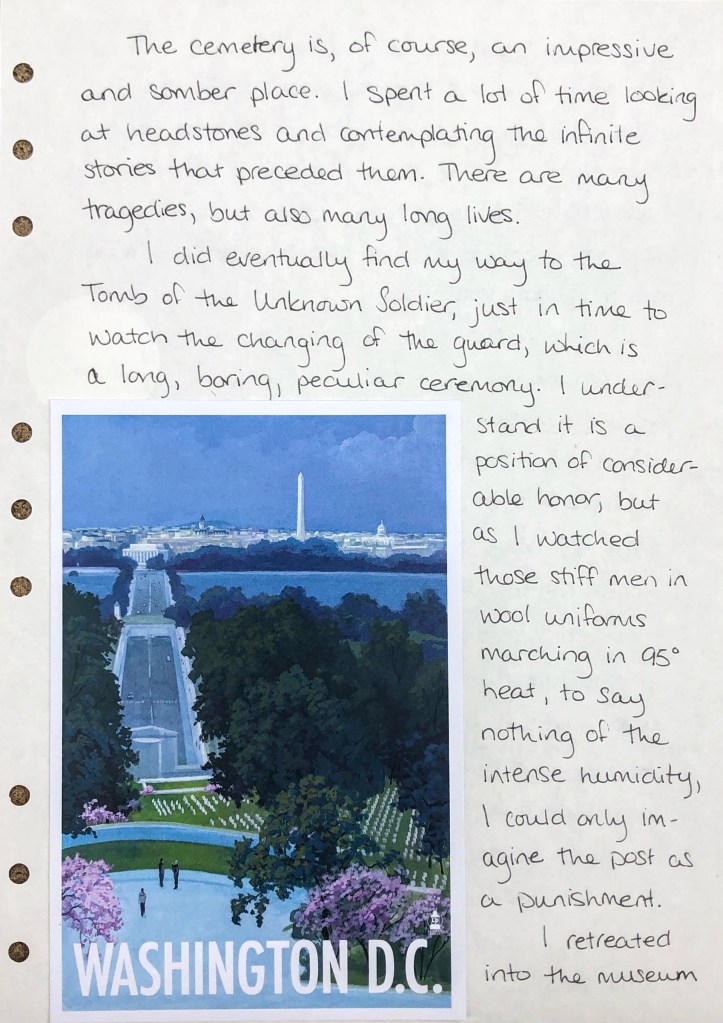 The cemetery is, of course, an impressive
and somber place. I spent a lot of time looking
at headstones and contemplating the infinite
stories that preceded them. There are many
tragedies, but also many long lives.
I did eventually find my way to the
Tomb of the Unknown Soldier, just in time to
watch the changing of the guard, which is
a long, boring, peculiar ceremony. I under-
stand it is a
position of consider-
able honor, but
as I watched
those stiff men in
wool uniforms
marching in 95°
heat, to say
nothing of the
intense humidity,
I could only im-
agine the post as
a punishment.
I retreated
into the museum
WASHINGTON D.C.